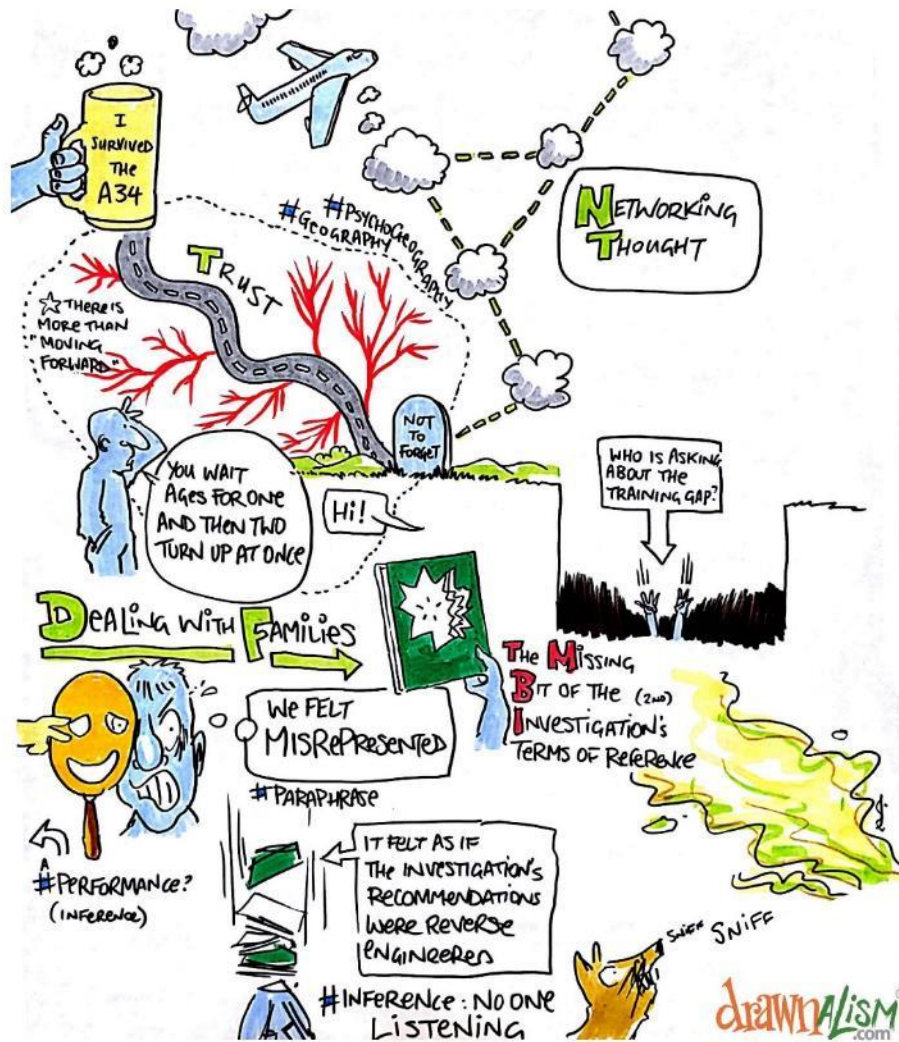 I
SURVIVED
THE
A34
#GEOGRAPHY
#PSYCHOGEOGRAPHY
NETWORKING
THOUGHT
TRUST
☆ THERE IS
MORE THAN
"MOVING
FORWARD"
NOT
TO
FORGET
YOU WAIT
AGES FOR ONE
AND THEN TWO
TURN UP AT ONCE
Hi!
WHO IS ASKING
ABOUT THE
TRAINING GAP?
DEALING WITH FAMILIES
THE MISSING
BIT OF THE (2ND)
INVESTIGATION'S
TERMS OF REFERENCE
WE FELT
MISREPRESENTED
#PARAPHRASE
A
#PERFORMANCE?
(INFERENCE)
IT FELT AS IF
THE INVESTIGATION'S
RECOMMENDATIONS
WERE REVERSE
ENGINEERED
#INFERENCE: NO ONE
LISTENING
SNIFF SNIFF
drawnALISM
.com